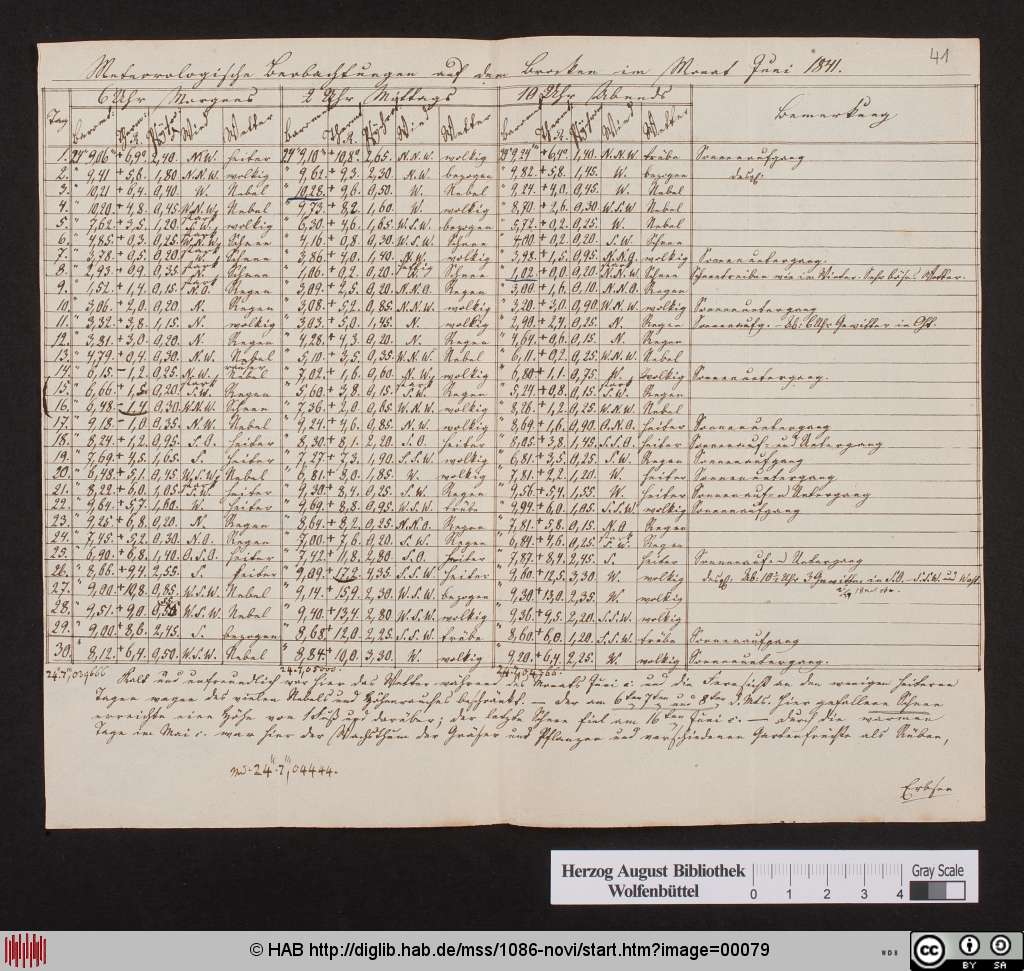 41
Meteorologische Beobachtungen auf dem Brocken im Monat Juni 1841.
Tag 6 Uhr Morgens 2 Uhr Mittags 10 Uhr Abends Bemerkung
Wind Wetter Wind Wetter Wind Wetter
1. 24" 9,06"' + 6,9° 2,40. N.W. heiter 24" 9,10"' + 10,8° 2,65. N.N.W. wolkig 24" 9,24"' + 6,4° 1,40. N.N.W. trübe Sonnenaufgang
2. " 9,41 + 5,6. 1,80 N.N.W. wolkig " 9,62. + 9,3. 2,30 N.W. bezogen " 9,82. + 5,8. 1,45. W. bezogen desgl.
3. " 10,21 + 6,4. 0,40. W. Nebel " 10,28. + 9,6. 0,50. W. Nebel " 9,24. + 4,0. 0,45. W. Nebel
4. " 10,20. + 4,8. 0,45. W.N.W. Nebel " 9,73. + 8,2. 1,60. W. wolkig " 8,70. + 2,6. 0,30. W.S.W Nebel
5. " 7,62. + 3,5. 1,20. wolkig " 6,30. + 4,6. 1,65. W.S.W. bezogen " 5,72. + 0,2. 0,25. W. Nebel
6. " 4,85. + 0,3. 0,25. W.N.W. Schnee " 4,16. + 0,8. 0,30. W.S.W. Schnee " 4,00 + 0,2. 0,20. S.W. Schnee
7. " 3,78. + 0,5. 0,20. Schnee " 3,86. + 4,0. 1,40. N.W. wolkig " 3,48. + 1,5. 0,95. N.N.O. wolkig Sonnenuntergang.
8. " 2,43. + 0,9. 0,35. N. Schnee " 1,06. + 0,2. 0,20. Schnee " 1,02. + 0,0. 0,20. N.N.W. Schnee Schneetreiben wie im Winter. Sehr böses Wetter.
9. " 1,52. + 1,4. 0,15. N.O. Regen " 3,09. + 2,5. 0,20. N.N.O. Regen " 3,00 + 1,6. 0,10. N.N.O. Regen
10. " 3,06. + 2,0. 0,20. N. Regen " 3,08. + 5,2. 0,85. N.N.W. wolkig " 3,20. + 3,0. 0,90. W.N.W. wolkig Sonnenuntergang
11. " 3,32. + 3,8. 1,15. N. wolkig " 3,03. + 5,0. 1,45. N. wolkig " 2,90. + 2,4. 0,25. N. Regen Sonnenaufg. - Ab. 6 Uhr Gewitter in Ost.
12. " 3,81. + 3,0. 0,20. N. Regen " 4,28. + 4,3. 0,20. N. Regen " 4,64. + 0,6. 0,15. N. Regen
13. " 4,79. + 0,4. 0,30. N.W. Nebel " 5,10. + 3,5. 0,35. W.N.W. Nebel " 6,11. + 0,2. 0,25. W.N.W. Nebel
14. " 6,15. - 1,2. 0,25. N.W. Nebel " 7,02. + 1,6. 0,60. N.W. wolkig " 6,80 + 1,1. 0,75. W. wolkig Sonnenuntergang.
15. " 6,66. + 1,5. 0,20. S.W. Regen " 5,60. + 3,8. 0,15. S.W. Regen " 5,24. + 0,8. 0,15. S.W. Regen
16. " 6,48. - 1,4. 0,30. W.N.W. Schnee " 7,36. + 2,0. 0,65. W.N.W. wolkig " 8,26. + 1,2. 0,25. W.N.W. Nebel
17. " 9,18. - 1,0. 0,35. N.W. Nebel " 9,24. + 4,6. 0,85. N.W. wolkig " 8,69. + 1,6. 0,90. O.N.O. heiter Sonnenuntergang
18. " 8,24. + 1,2. 0,95. S.O. heiter " 8,30. + 8,1. 2,20. S.O. heiter " 8,05. + 3,8. 1,45. S.S.O. heiter Sonnenauf= und Untergang
19. " 7,69. + 4,5. 1,65. S. heiter " 7,27. + 7,3. 1,90. S.S.W. wolkig " 6,81. + 3,5. 0,25. S.W. Regen Sonnenaufgang
20. " 6,48. + 5,1. 0,45. W.S.W. Nebel " 6,81. + 3,0. 1,85. W. wolkig " 7,81. + 2,2. 1,20. W. heiter Sonnenuntergang
21. " 8,22. + 6,0. 1,05. S.S.W. heiter " 9,30. + 8,4. 0,25. S.W. Regen " 9,56. + 5,4. 1,55. W. heiter Sonnenauf- u Untergang
22. " 9,64. + 5,7. 1,60. W. heiter " 9,69. + 8,8. 0,95. W.S.W. trübe " 9,94. + 6,0. 1,05. S.S.W. wolkig Sonnenaufgang
23. " 9,25. + 6,8. 0,20. N. Regen " 8,64. + 8,2. 0,25. N.N.O. Regen " 7,81. + 5,8. 0,15. N.O Regen
24. " 7,45. + 5,2. 0,30. N.O. Regen " 7,00. + 7,6. 0,20. S.W. Regen " 6,84. + 4,6. 0,25. S.W. Regen
25. " 6,90. + 6,8. 1,40. O.S.O. heiter " 7,42. + 11,8. 2,80. S.O. heiter " 7,87. + 8,4. 2,45. S. heiter Sonnenauf- u Untergang
26. " 8,66. + 9,4. 2,55. S. heiter " 9,09. + 17,2. 4,35. S.S.W. heiter " 9,60. + 12,5. 3,30. W. wolkig desgl. Ab. 10½ Uhr 3 Gewitter in S.O. - S.S.W. und West
27. " 9,00. + 10,8. 0,85. W.S.W. Nebel " 9,14. + 15,9. 2,30. W.S.W. bezogen " 9,30. + 13,0. 2,35. W. wolkig
28. " 9,51. + 9,0. W.S.W. Nebel " 9,40. + 13,4. 2,80 W.S.W. wolkig " 9,36. + 9,5. 2,20. S.S.W. wolkig
29. " 9,00. + 8,6. 2,45. S. bezogen " 8,68. + 12,0. 2,25. S.S.W. trübe " 8,60. + 6,0. 1,20. S.S.W. trübe Sonnenaufgang
30. " 8,12. + 6,4. 0,50. W.S.W. Nebel " 8,84. + 10,0. 3,30. W. wolkig " 9,20. + 6,4. 2,25. W. wolkig Sonnenuntergang.
Kalt und unfreundlich war hier das Wetter während Monats Juni c. und die Fernsicht an den wenigen heiteren
Tagen wegen des vielen Nebels und Höhenrauches beschränkt. — Der am 6ten 7ten und 8ten d. Mts. hier gefallene Schnee
erreichte eine Höhe von 1 Fuß und darüber; der letzte Schnee fiel am 16ten Juni c. — Durch die warmen
Tage im Mai c. war hier der Wachsthum der Gräser und Pflanzen und verschiedenen Gartenfrüchte als Rüben,
24" 7"',04444.
Erbsen
Herzog August Bibliothek
Wolfenbüttel
0 1 2 3 4
Gray Scale
© HAB http://diglib.hab.de/mss/1086-novi/start.htm?image=00079
WDB
cc BY SA